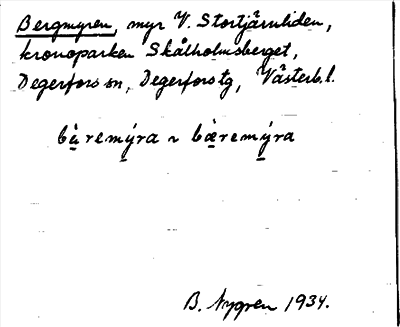 Bergmyren, myr V. Stortjärnliden,
kronoparken Skålholmsberget,
Degerfors sn, Degerfors tg, Västerb. l.
bæ̀remýra
B. Nygren 1934.